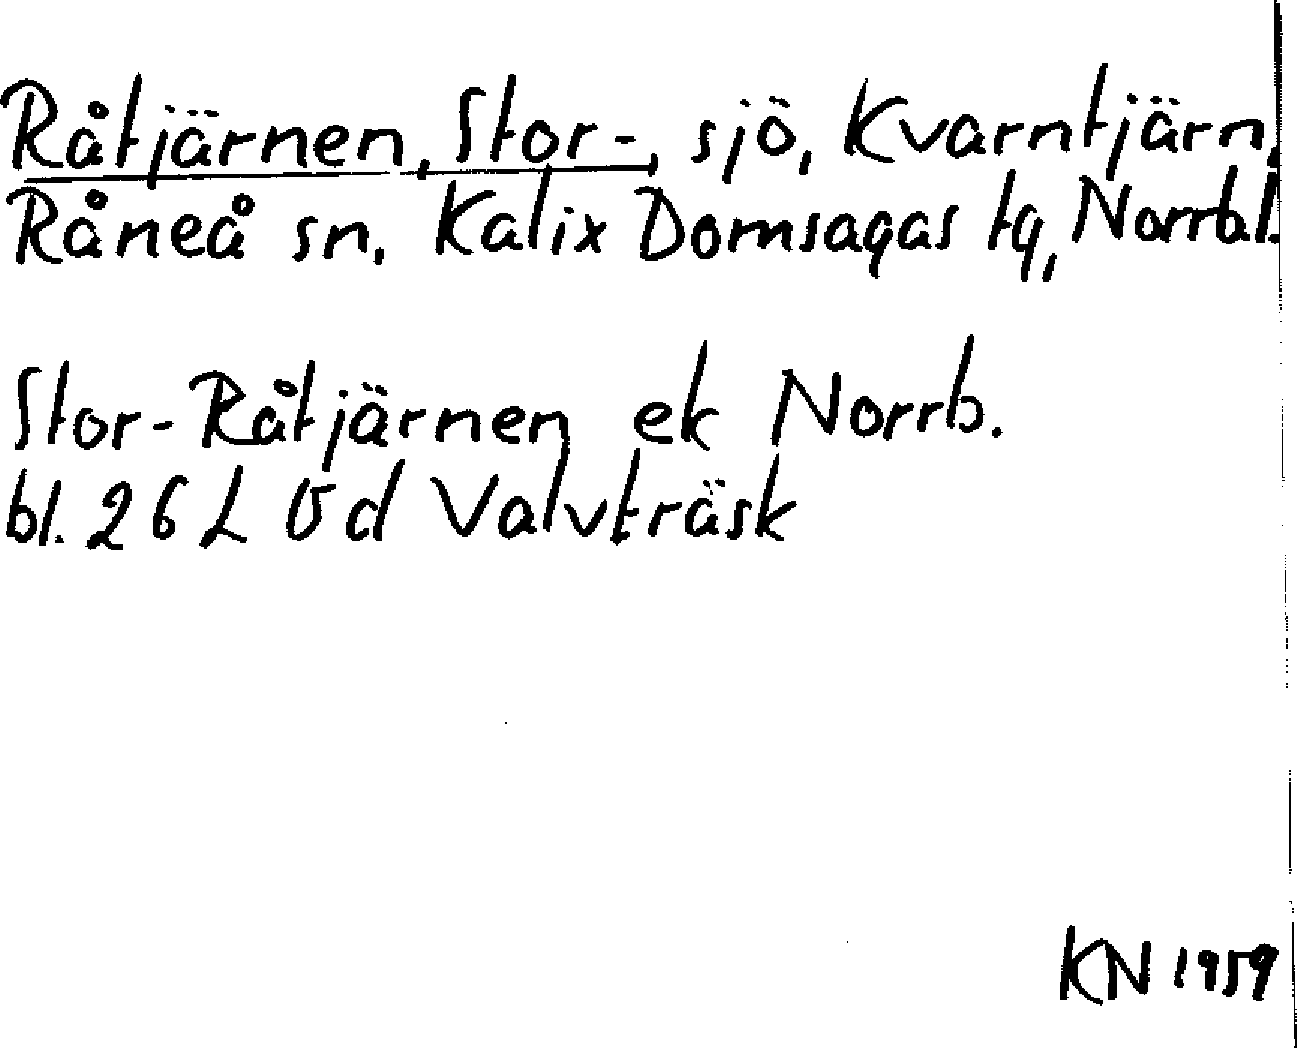 Råtjärnen, Stor-, sjö, Kvarntjärn,
Råneå sn. Kalix Domsagas tg, Norrb.l.
Stor-Råtjärnen ek Norrb.
bl. 26 L öd Valvträsk
KN 1959